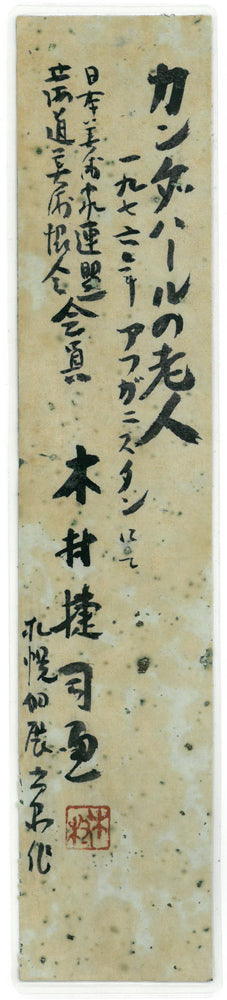 カンダハールの老人
一九七六年 アフガニスタンにて
日本美術家連盟
北海道美術協会 会員
木村捷司画
札幌個展出品作
木村